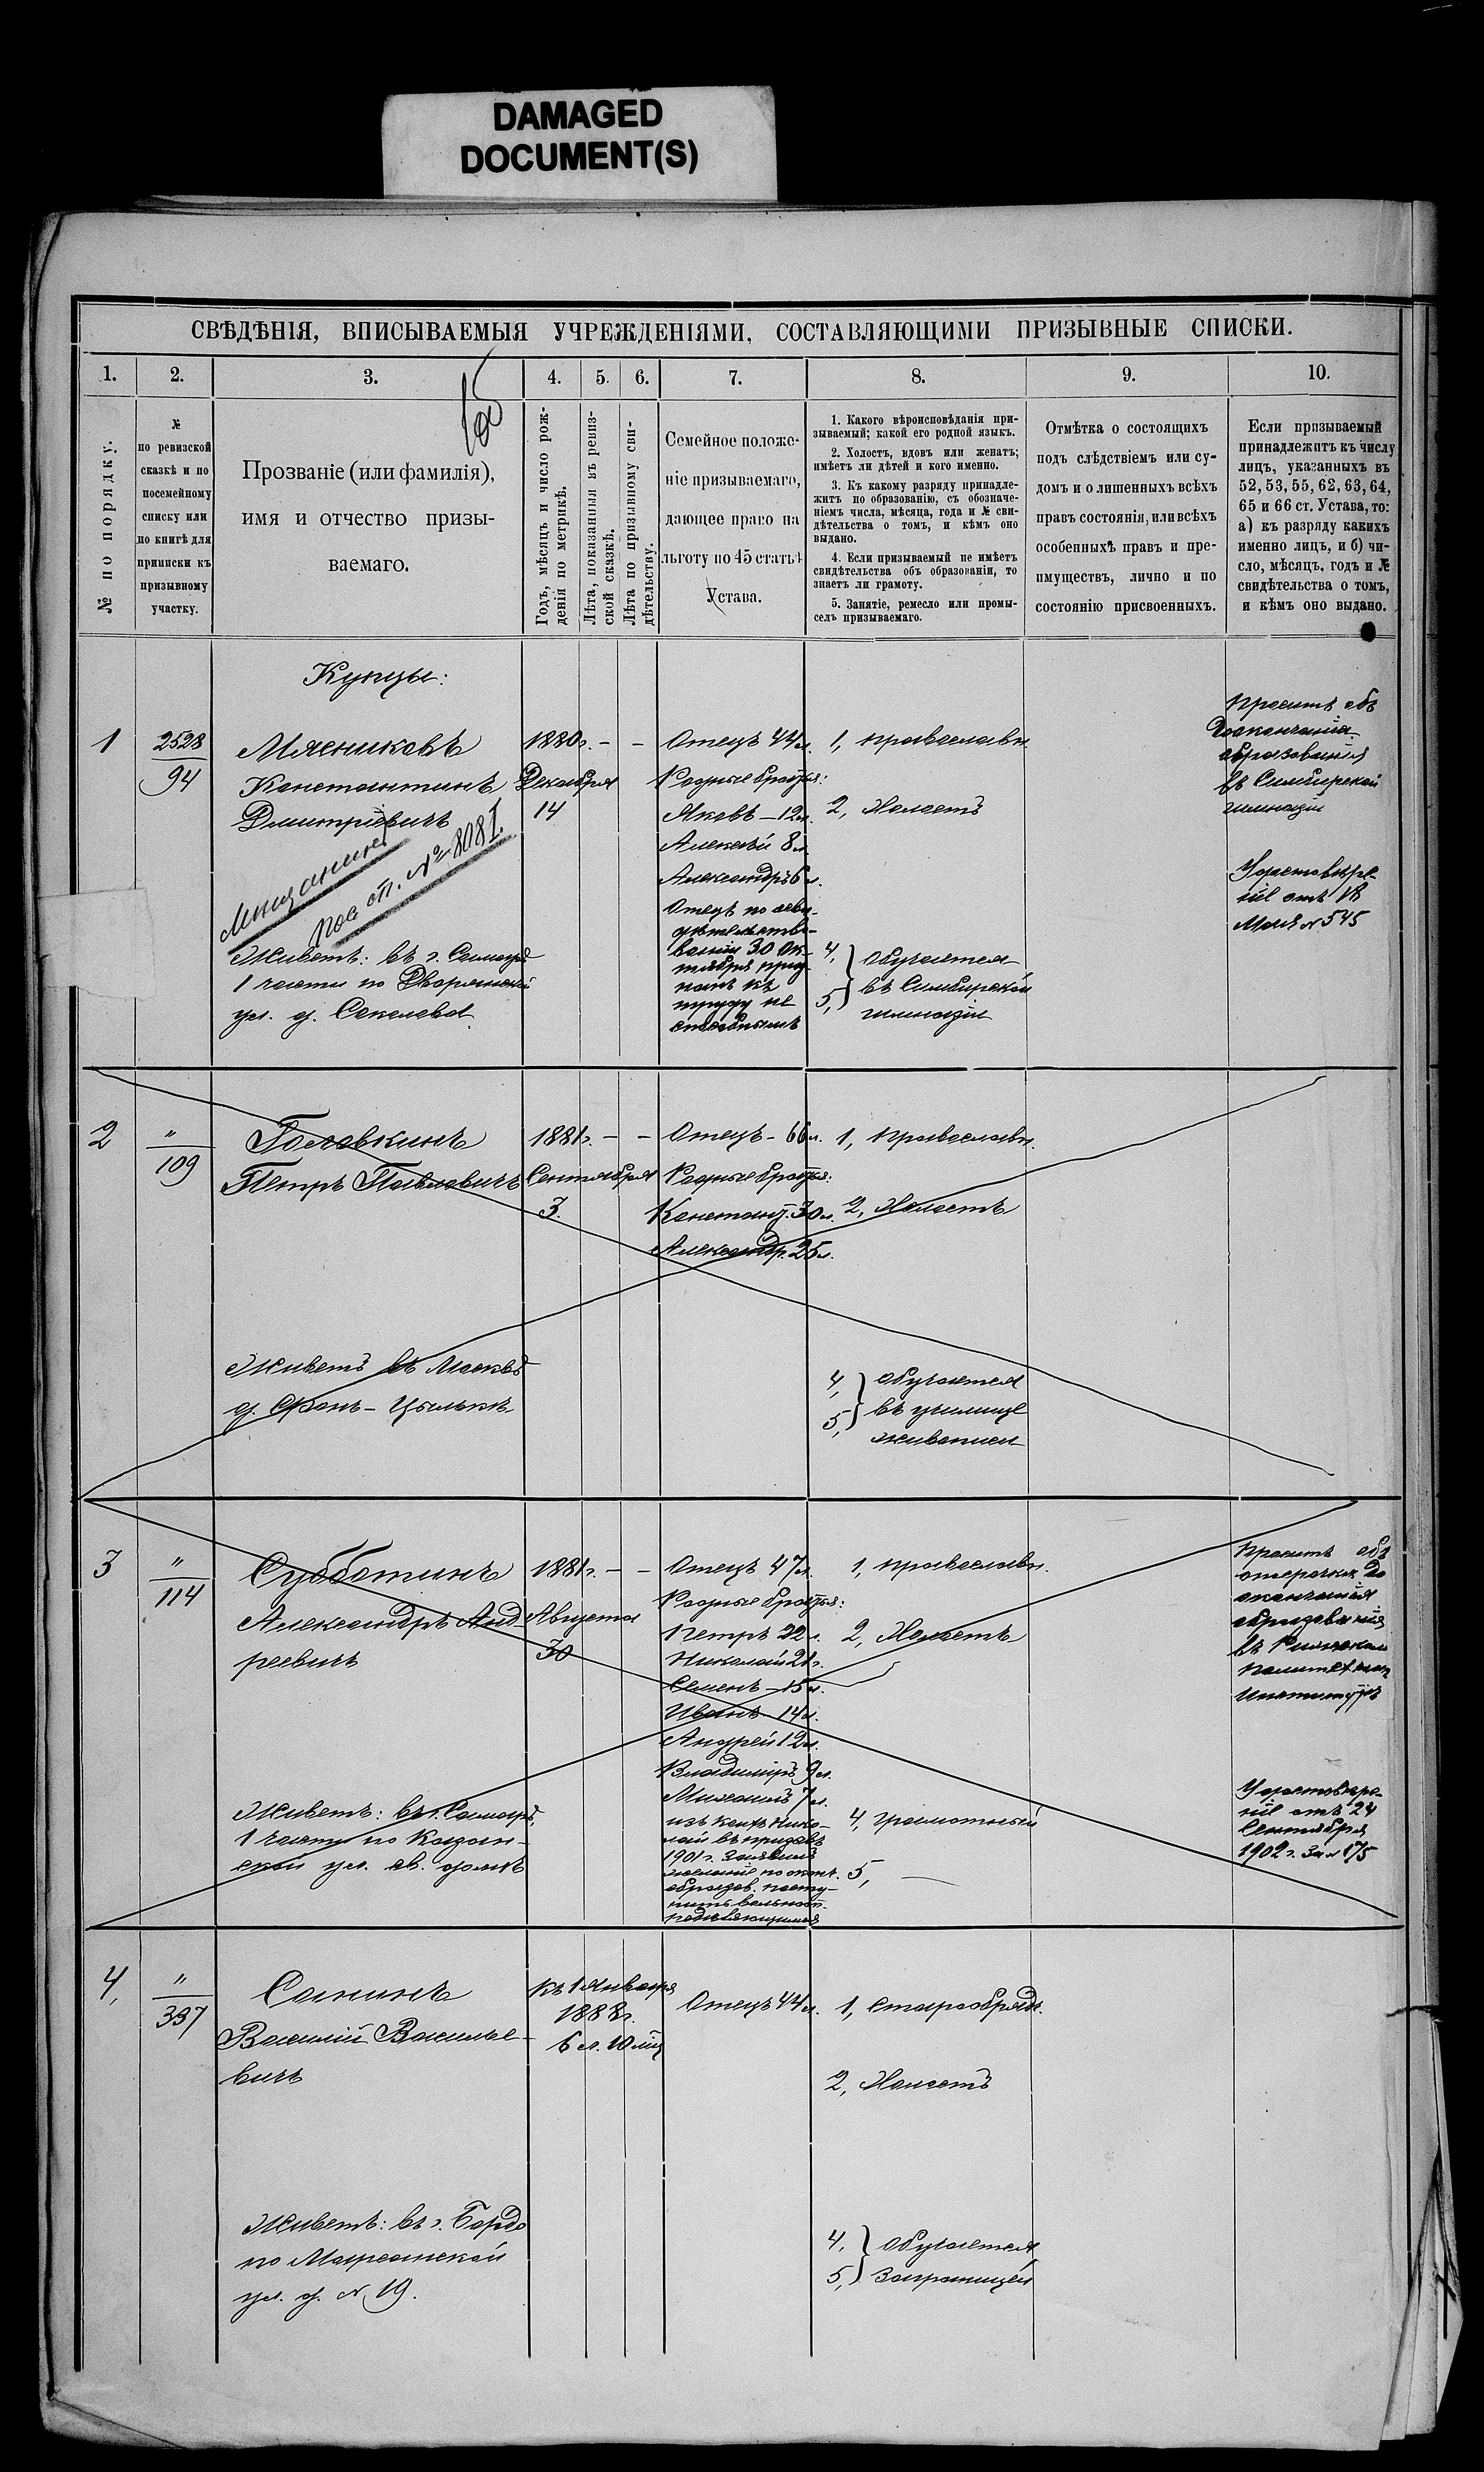 DAMAGED
DOCUMENT(S)
СВѢДѢНІЯ, ВПИСЫВАЕМЫЯ УЧРЕЖДЕНІЯМИ, СОСТАВЛЯЮЩИМИ ПРИЗЫВНЫЕ СПИСКИ.
1.
2.
3.
4.
5.
6.
7.
8.
9.
10.
№ по порядку.
№
по ревизской
сказкѣ и по
посемейному
списку или
по книгѣ для
приписки къ
призывному
участку.
Прозваніе (или фамилія),
имя и отчество призы-
ваемаго.
Годъ, мѣсяцъ и число рож-
денія по метрикѣ.
Лѣта, показанныя въ ревиз-
ской сказкѣ.
Лѣта по призывному сви-
дѣтельству.
Семейное положе-
ніе призываемаго,
дающее право на
льготу по 45 статьѣ
Устава.
1. Какого вѣроисповѣданія при-
зываемый; какой его родной языкъ.
2. Холостъ, вдовъ или женатъ;
имѣетъ ли дѣтей и кого именно.
3. Къ какому разряду принадле-
житъ по образованію, съ обозначе-
ніемъ числа, мѣсяца, года и № сви-
дѣтельства о томъ, и кѣмъ оно
выдано.
4. Если призываемый не имѣетъ
свидѣтельства объ образованіи, то
знаетъ ли грамоту.
5. Занятіе, ремесло или промы-
селъ призываемаго.
Отмѣтка о состоящихъ
подъ слѣдствіемъ или су-
домъ и о лишенныхъ всѣхъ
правъ состоянія, или всѣхъ
особенныхъ правъ и пре-
имуществъ, лично и по
состоянію присвоенныхъ.
Если призываемый
принадлежитъ къ числу
лицъ, указанныхъ въ
52, 53, 55, 62, 63, 64,
65 и 66 ст. Устава, то:
а) къ разряду какихъ
именно лицъ, и б) чи-
сло, мѣсяцъ, годъ и №
свидѣтельства о томъ,
и кѣмъ оно выдано.
Купцы:
1
2528
94
Мясниковъ
Константинъ
Дмитріевичъ
Мѣщанинъ
пос. оп. № 8081.
Живетъ: въ г. Самарѣ
1 части по Дворянской
ул. д. Соколова
1880г. – –
Декабря
14
Отецъ 44л.
Родные братья:
Яковъ – 12л.
Алексѣй 8л.
Александръ 6л.
Отецъ по осви-
дѣтельство-
ваніи 30 ок-
тября приз-
нанъ къ
труду не
способнымъ
1, православн.
2, Холостъ
4,
5,
обучается
въ Симбирской
гимназіи
Проситъ объ
окончанія
образованія
въ Симбирской
гимназіи
Удостовѣре-
ніе отъ 18
Мая № 545
2
"
109
Головкинъ
Петръ Павловичъ
Живетъ въ Москвѣ
д. Фонъ-
1881г. – –
Сентября
3.
Отецъ – 66л.
Родные братья:
Констант. 30л.
Александр. 25л.
1, православн.
2, Холостъ
4,
5,
обучается
въ училищѣ
живописи
3
"
114
Субботинъ
Александръ Анд-
реевичъ
Живетъ: въ г. Самарѣ,
1 части по Казан-
ской ул. св. домѣ
1881г. – –
Августа
30
Отецъ 47л.
Родные братья:
Петръ 22л.
Николай 21г.
Семенъ – 15л.
Иванъ – 14л.
Андрей 12л.
Владиміръ 9л.
Михаилъ 7л.
изъ коихъ Нико-
лай въ призывъ
1901г. заявилъ
желаніе по оконч.
образов. посту-
пить вольнооп-
редѣляющимся
1, православн.
2, Холостъ
4, грамотный
5, –
Проситъ объ
отсрочкѣ до
окончанія
образованія
въ Рижскомъ
политехнич.
Институтѣ
Удостовѣре-
ніе отъ 24
Сентября
1902г. за № 175
4,
"
337
Санинъ
Василій Василье-
вичъ
Живетъ: въ г. Бордо
по
ул. д. № 19.
къ 1 Января
1888г.
6 л. 10 мѣс.
Отецъ 44л.
1, старообрядч.
2, Холостъ
4,
5,
обучается
заграницей